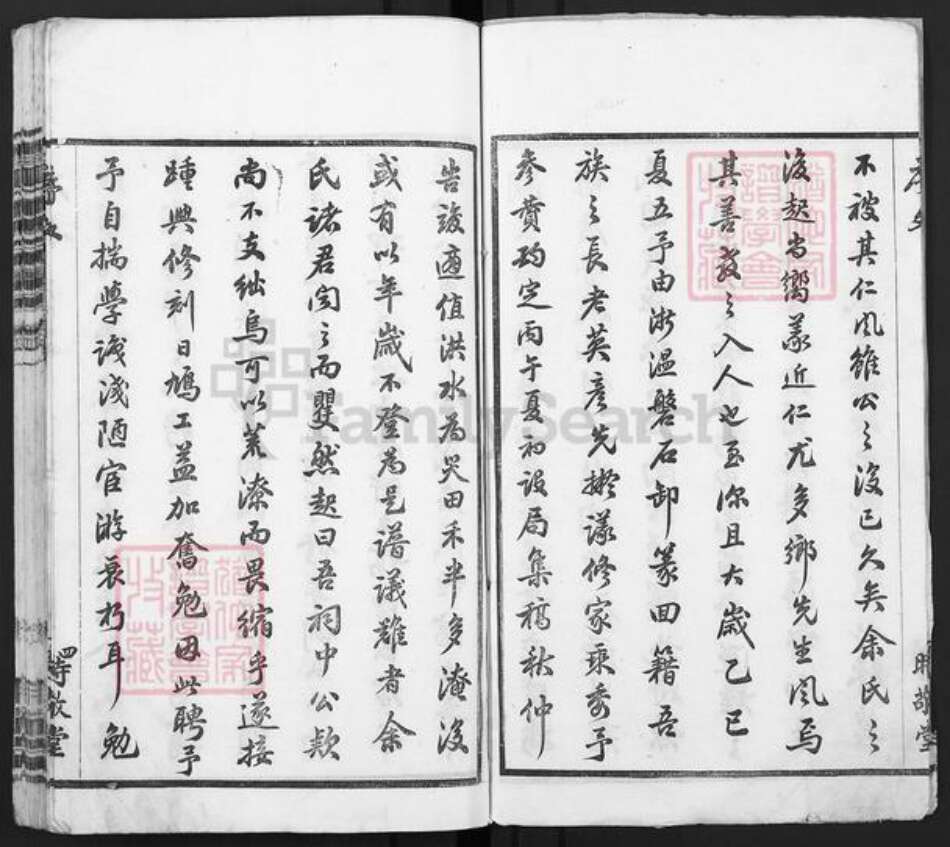 不被其仁風雖公之没已久矣余氏之
後起尚嚮慕近仁尤多鄉先生風焉
其善教之入人也至深且大歲乙巳
夏五予由浙溫磐石卸篆回籍吾
族之長老英彥先擬議修家乘委予
參費酌定丙午夏初設局集稿秋仲
告竣適值洪水為災田禾半多淹沒
或有以年歲不登為是譜議難者余
氏諸君聞之而瞿然起曰吾祠中公款
尚不支絀烏可以荒潦而畏縮乎遂接
踵興修刻日鳩工益加奮勉因此聘予
予自揣學淺陋宦游衰朽耳勉
序文
四
時敬堂
FamilySearch